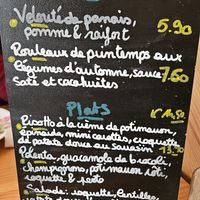 Velouté de panais,
pomme & raifort 5.90
Rouleaux de printemps aux
légumes d'automne, sauce 7.60
Saté et cacahuètes
Plats
Risotto à la crème de potimarron,
épinards, mini carottes, croquette
de patate douce au Sarrasin
Polenta, guacamole de brocoli,
champignons, potimaron rôti,
roquette & pesto
Salade: roquette, lentilles,